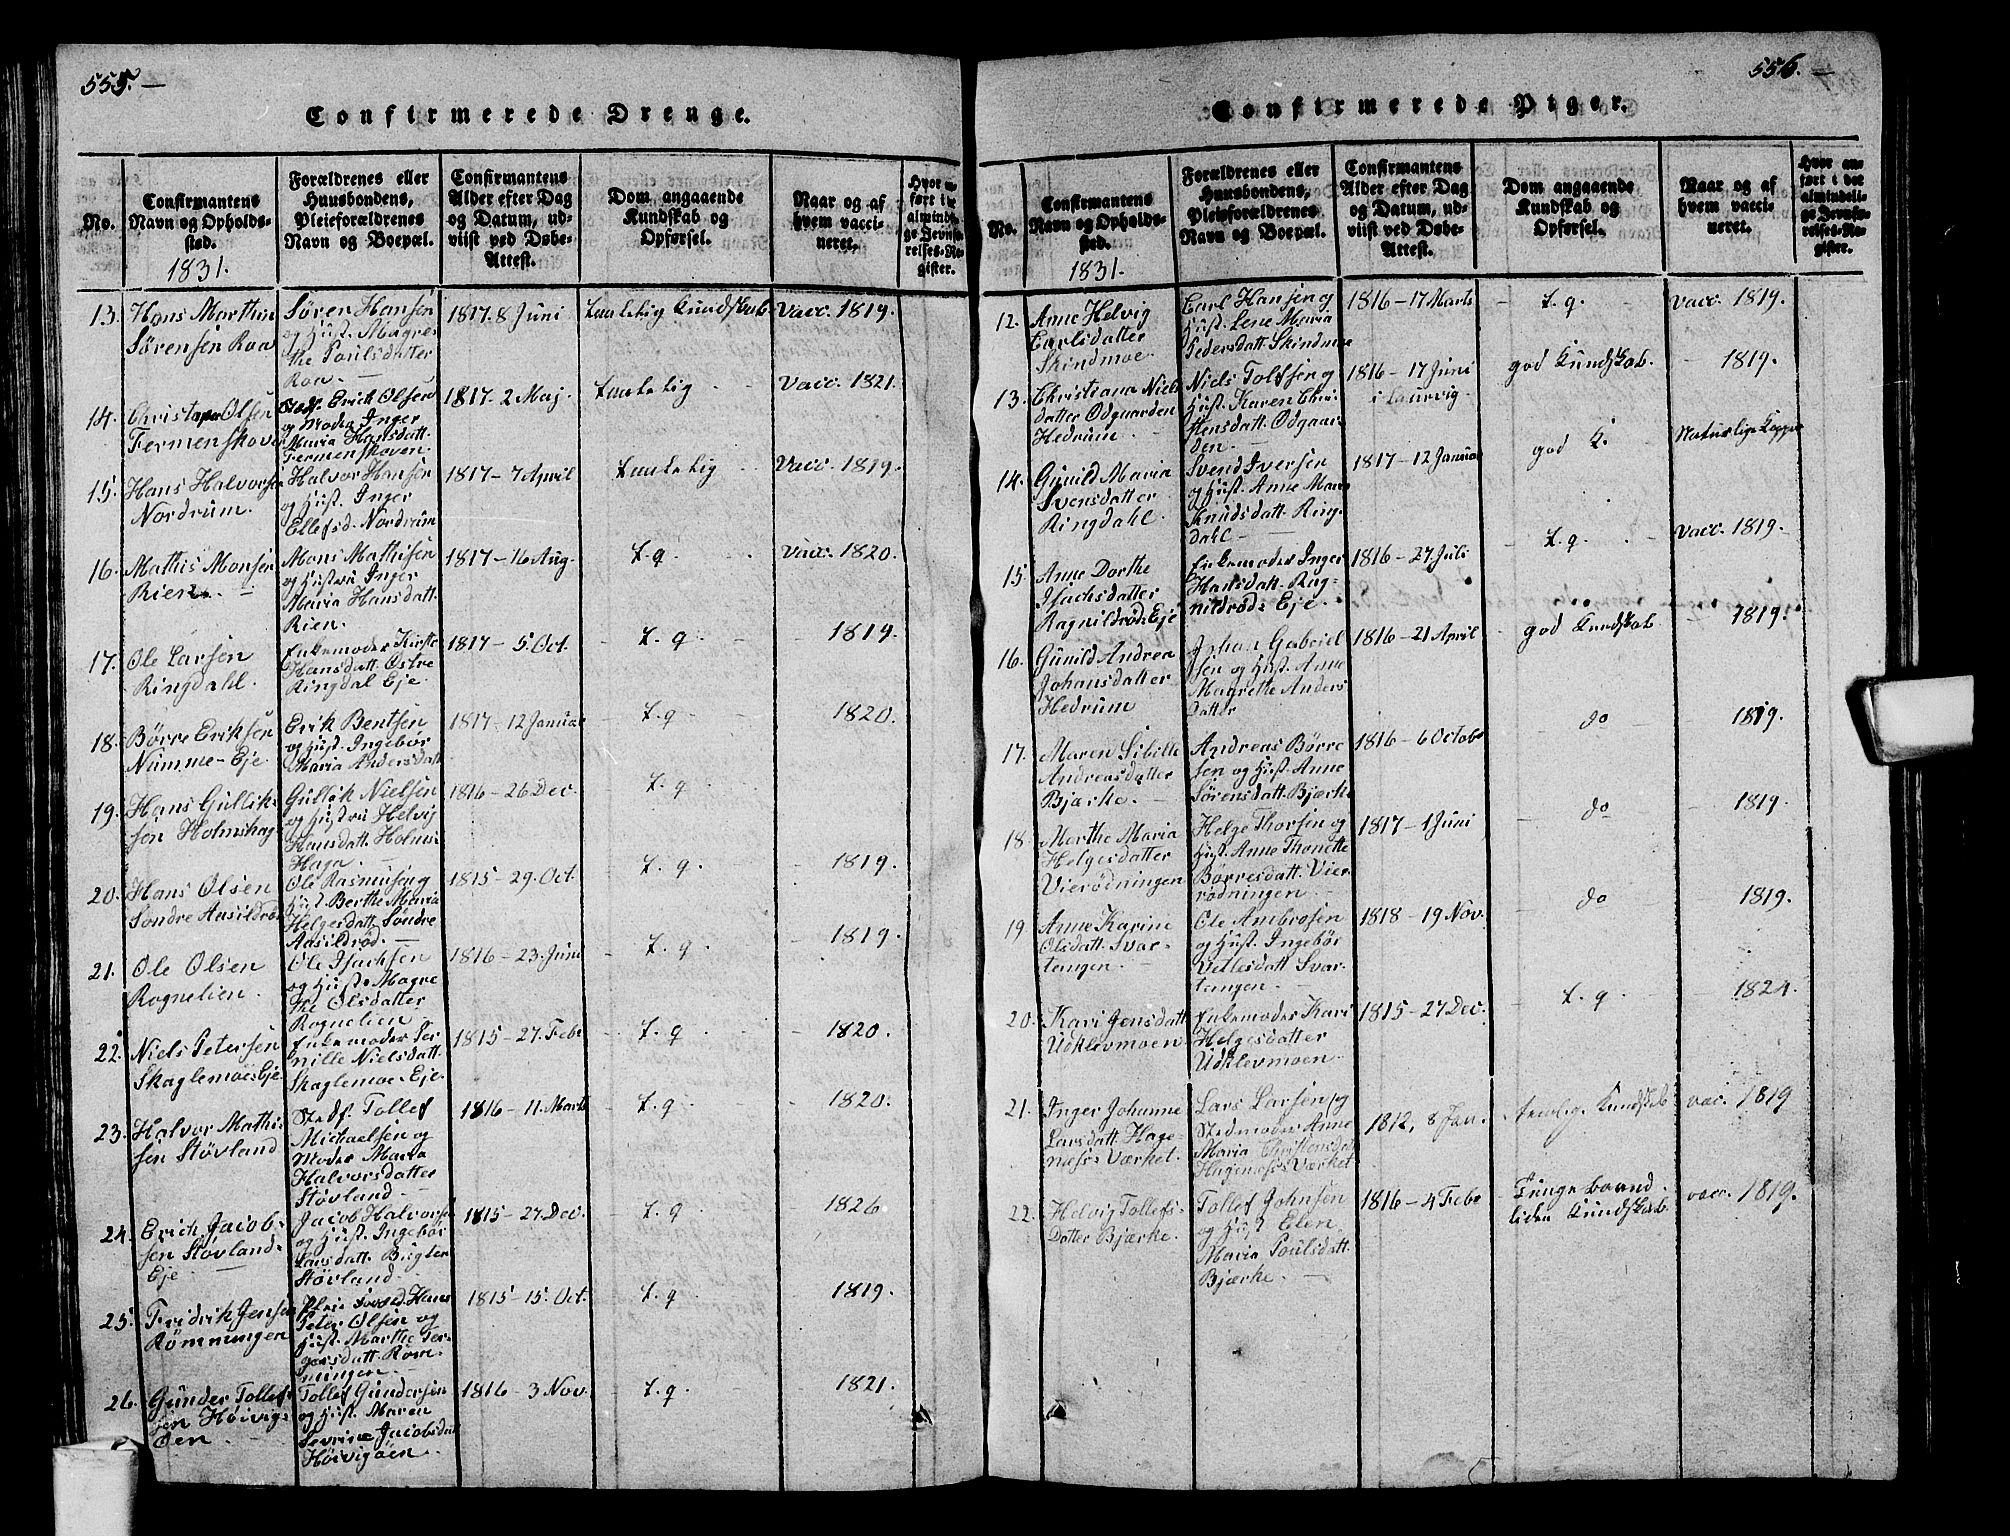 555.
Confirmerede Drenge.
No.
Confirmantens
Navn og Opholds-
sted.
1831.
Forældrenes eller
Huusbondens,
Pleieforældrenes
Navn og Boepæl.
Confirmantens
Alder efter Dag
og Datum, ud-
viist ved Døbe-
Attest.
Dom angaaende
Kundskab og
Opførsel.
Naar og af
hvem vacci-
neret.
13. Hans Marthin
Sørensen Roa
Søren Hansen
og Hust. Magre
the Poulsdatter
Roa.
1817. 8 Juni
taalelig Kundskab.
Vacc. 1819.
14. Christopher Olsen
Fermenskoven
Stedf. Erich Olsen
og Moder Inger
Maria Hansdatt.
Fermenskoven.
1817- 2 Maj.
taalelig
Vacc. 1821.
15. Hans Halvorsen
Nordrum.
Halvor Hansen
og Hust. Inger
Ellefsd. Nordrum
1817- 7 April
taalelig
Vacc. 1819.
16. Mathis Monsen
Rien.
Mons Mathisen
og Hustru Inger
Maria Hansdatt.
Rien.
1817- 16 Aug.
t. g
Vacc. 1820.
17. Ole Larsen
Ringdahl.
Enkemoder Kirste
Hansdatt. Østre
Ringdal Eje.
1817- 5. Oct.
t. g
1819.
18. Børre Eriksen
Numme-Eje.
Erik Bentsen
og Hust. Ingebor
Maria Andersdatt
1817- 12 Januar
t. g
1820.
19. Hans Gullik-
sen Holmshag
Gullik Nielsen
og Hustru Helvig
Hansdatt. Holms
Haga.
1816- 26 Dec.
t. g.
20. Hans Olsen
Søndre Aasildrød
Ole Rasmusen g
Hust. Berthe Maria
Helgesdatt. Søndre
Aasildrød.
1815- 29. Oct.
t. g.
1819.
21. Ole Olsen
Rognelien.
Ole Isachsen
og Hust. Magre
the Olsdatter
Rognelien
1816- 23. Juni
t. g.
1819.
22. Niels Petersen
Skaglemoes Eje
Enkemoder Per
nille Nielsdatt.
Skaglemoes Eje.
1815- 27. Feb
t. g.
1820.
23. Halvor Mathi-
sen Støvland
Stedf. Tollef
Michaelsen og
Moder Maria
Halvorsdatter
Støvland.
1816- 11. Marts
t. g
1820.
24. Erich Jacob-
sen Støvland-
Eje
Jacob Halvorsen
og Hust. Ingebor
Larsdatt.
Støvland.
1815- 27 Dec.
t. g
1826.
25. Fridrik Jensen
Rømningen
Hans
Peter Olsen og
Hust. Marthe Tor-
gersdatt. Røm-
ningen
1815- 15. Oct.
t. g.
1819.
26. Gunder Tollef-
sen Høivigs
Øen
Tollef Gundersen
og Hust. Maren
Sevrine Jacobsdatt
Høivigøen.
1816- 3 Nov.
t. g
1821.
556.
Confirmerede Piger.
No.
Confirmantens
Navn og Opholds-
sted.
1831.
Forældrenes eller
Huusbondens,
Pleieforældrenes
Navn og Boepæl.
Confirmantens
Alder efter Dag
og Datum, ud-
viist ved Døbe-
Attest.
Dom angaaende
Kundskab og
Opførsel.
Naar og af
hvem vacci-
neret.
Hvor an-
ført i det
almindeli-
ge Jevnfø-
relses-Re-
gister.
12. Anne Helvig
Carlsdatter
Skindmoe.
Carl Hansen g
Hust. Lene Maria
Pedersdatt. Skindmoe
1816- 17 Marts
t. g.
vacc. 1819.
13. Christiana Niels
datter Odgaarden
Hedrum
Niels Tolfsen g
Hust. Karen Chri-
stensdatt. Odgaar
den.
1816- 17 Juni
i Laurvig.
god Kundskab.
1819.
14. Gunild Maria
Svensdatter
Ringdahl.
Svend Iversen
og Hust. Anne Mari
Knudsdatt. Ring
dahl
1817- 12 Januar
god K.
Naturlige Kopper
15. Anne Dorthe
Isachsdatter
Ragnildrøds Eje
Enkemoder Inger
Hansdatt. Rag-
nildrøds Eje.
1816- 27. Juli
t. g.
vacc. 1819.
16. Gunild Andrea
Johansdatter
Hedrum
Johan Gabriel
sen og Hust. Anne
Magrethe Anders
datter
1816- 21 April
god Kundskab
1819.
17. Maren Sibille
Andreasdatter
Bjærke.
Andreas Børre
sen og Hust. Anne
Sørensdatt. Bjærke
1816- 6 Octob
do
1819.
18 Marthe Maria
Helgesdatter
Vierødningen
Helge Thorsen og
Hust. Anne Thonette
Børresdatt. Vier
rødningen
1817- 1 Juni
do
1819.
19 Anne Karine
Olsdatt. Svar-
tangen.
Ole Ambrosen
og Hust. Ingebør
Vetlesdatt Svar-
tangen.
1818- 19 Nov.
do
1819.
20. Kari Jensdatt
Udklevmoen
Enkemoder Kari
Helgesdatter
Udklevmoen
1815- 27 Dec.
t. g
1824.
21. Inger Johanne
Larsdatt. Hage-
næs-Værket.
Lars Larsen og
Stedmoder Anne
Maria Christensdatt
Hagenæs Værket
1812, 8 Jan.
temlig Kundskab
vac. 1819
22. Helvig Tollefs-
datter Bjærke.
Tollef Johnsen
og Hust Elen
Maria Poulsdatt.
Bjærke
1816- 4 Feb
liden Kundskab.
vacc. 1819.